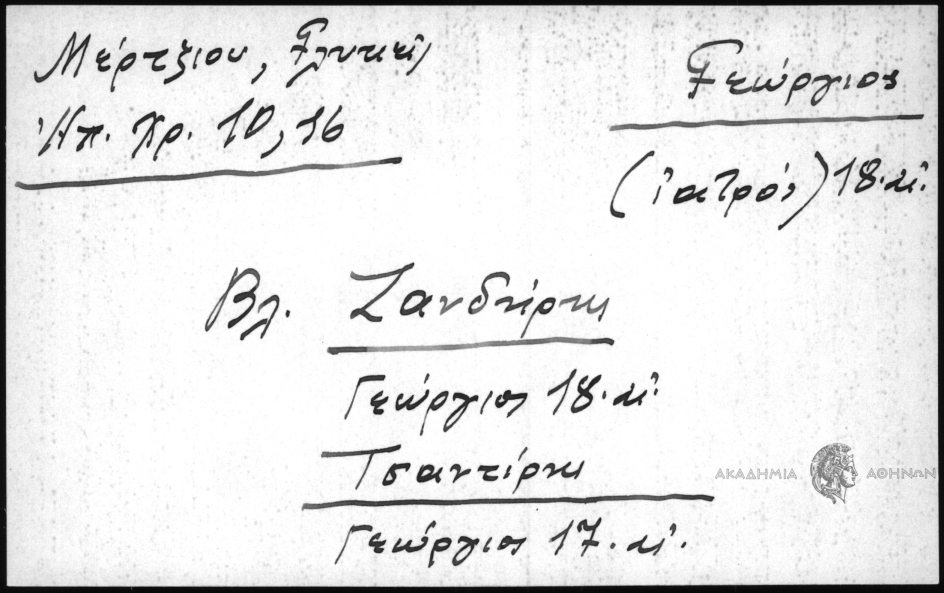 Μέρτζιου, Γλυκεῖς
Ἠπ. Χρ. 10, 16
Γεώργιος
(ἰατρός) 18. αἰ.
Βλ. Ζανδήρης
Γεώργιος 18. αἰ.
Τσαντίρης
Γεώργιος 17. αἰ.
ΑΚΑΔΗΜΙΑ ΑΘΗΝΩΝ